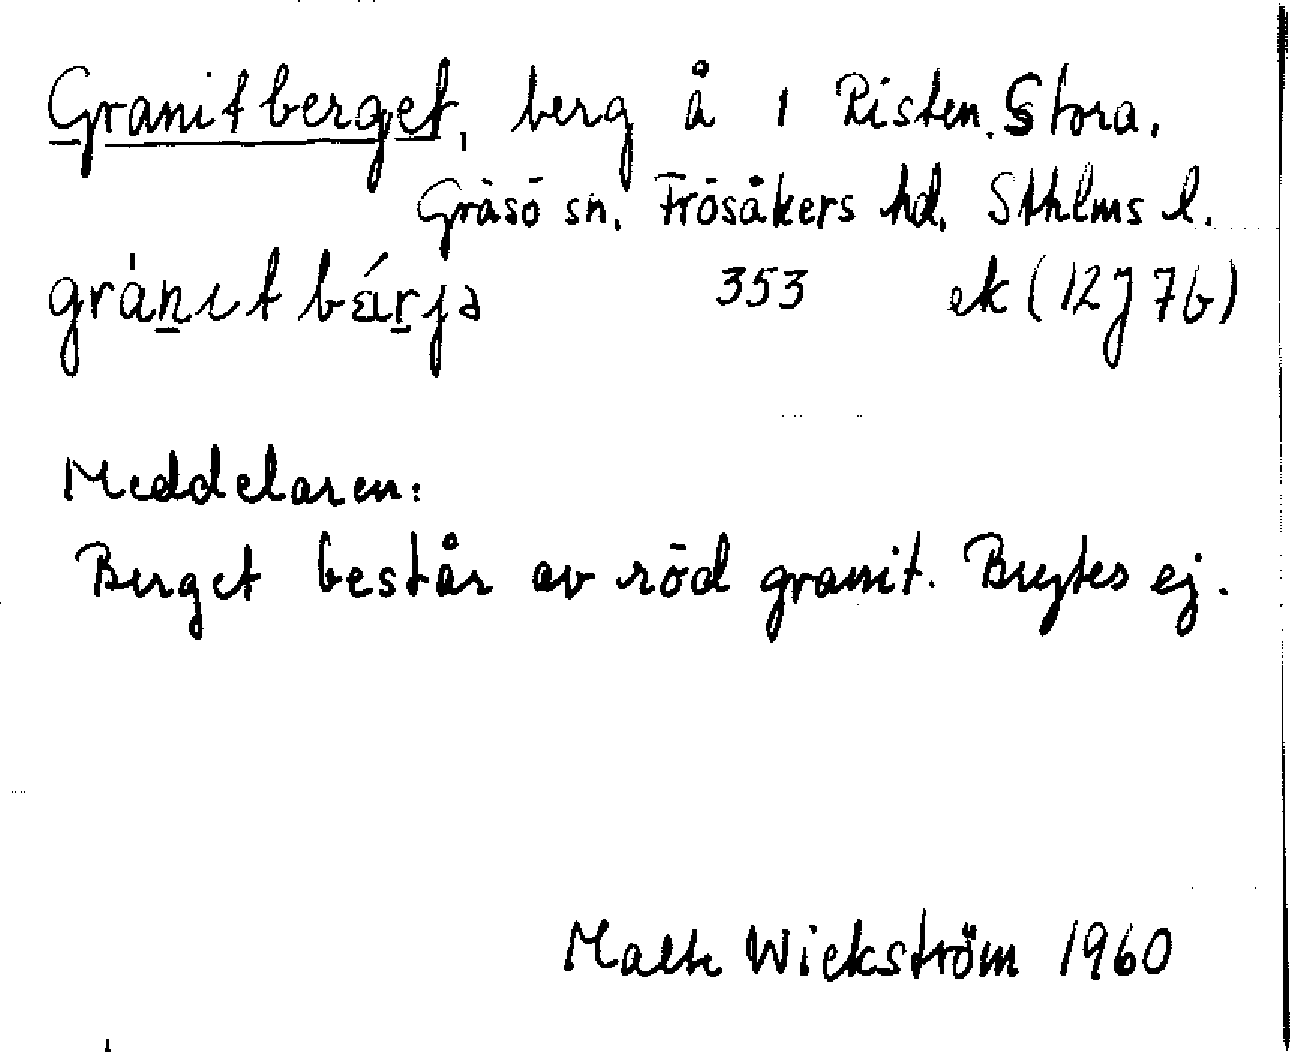 Granitberget, berg å 1 Risten. Stora.
Gräsö sn. Frösåkers hd. Sthlms l.
grànıtbä́rjə 353 ek (12J 7b)
Meddelaren:
Berget består av röd granit. Brytes ej.
Malte Wickström 1960